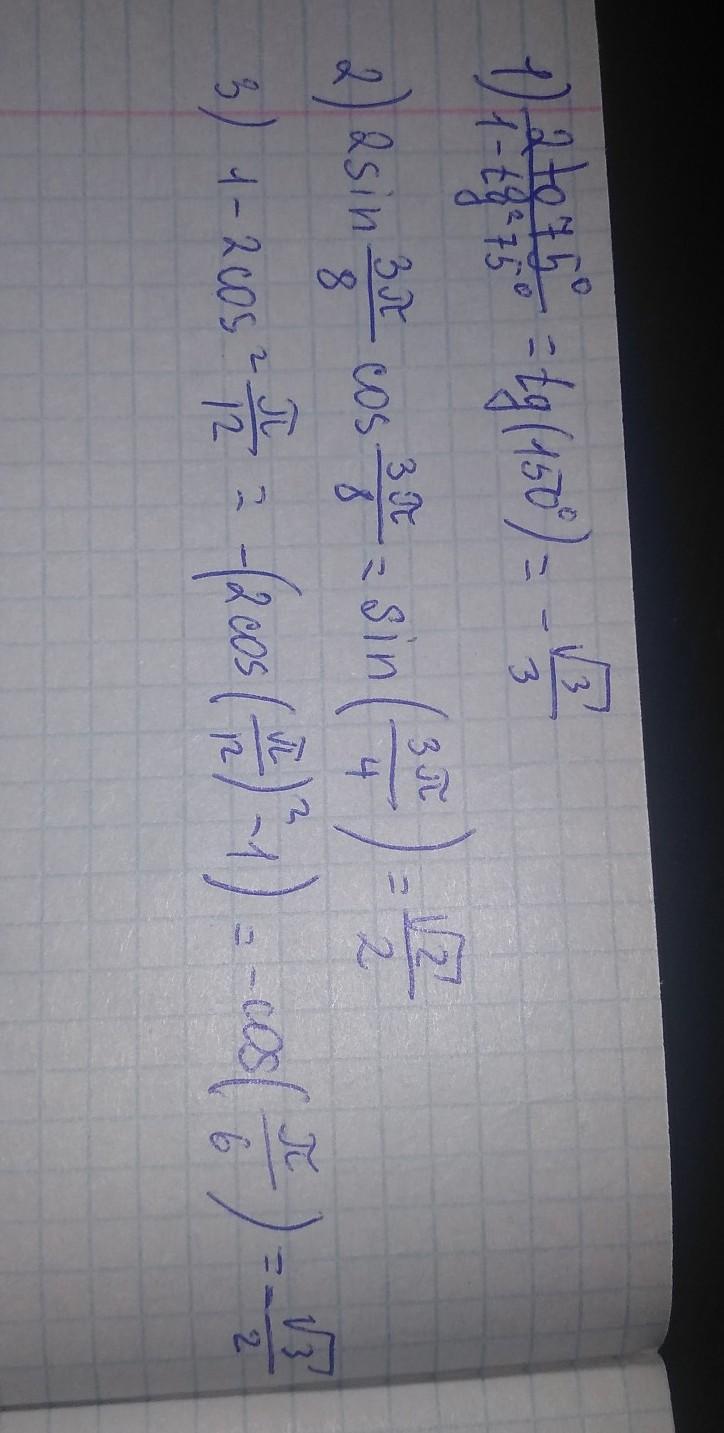 1) 2tg75° / 1-tg²75° = tg(150°) = -√3/3
2) 2sin 3π/8 cos 3π/8 = sin(3π/4) = √2/2
3) 1-2cos² π/12 = -(2cos(π/12)²-1) = -cos(π/6) = -√3/2